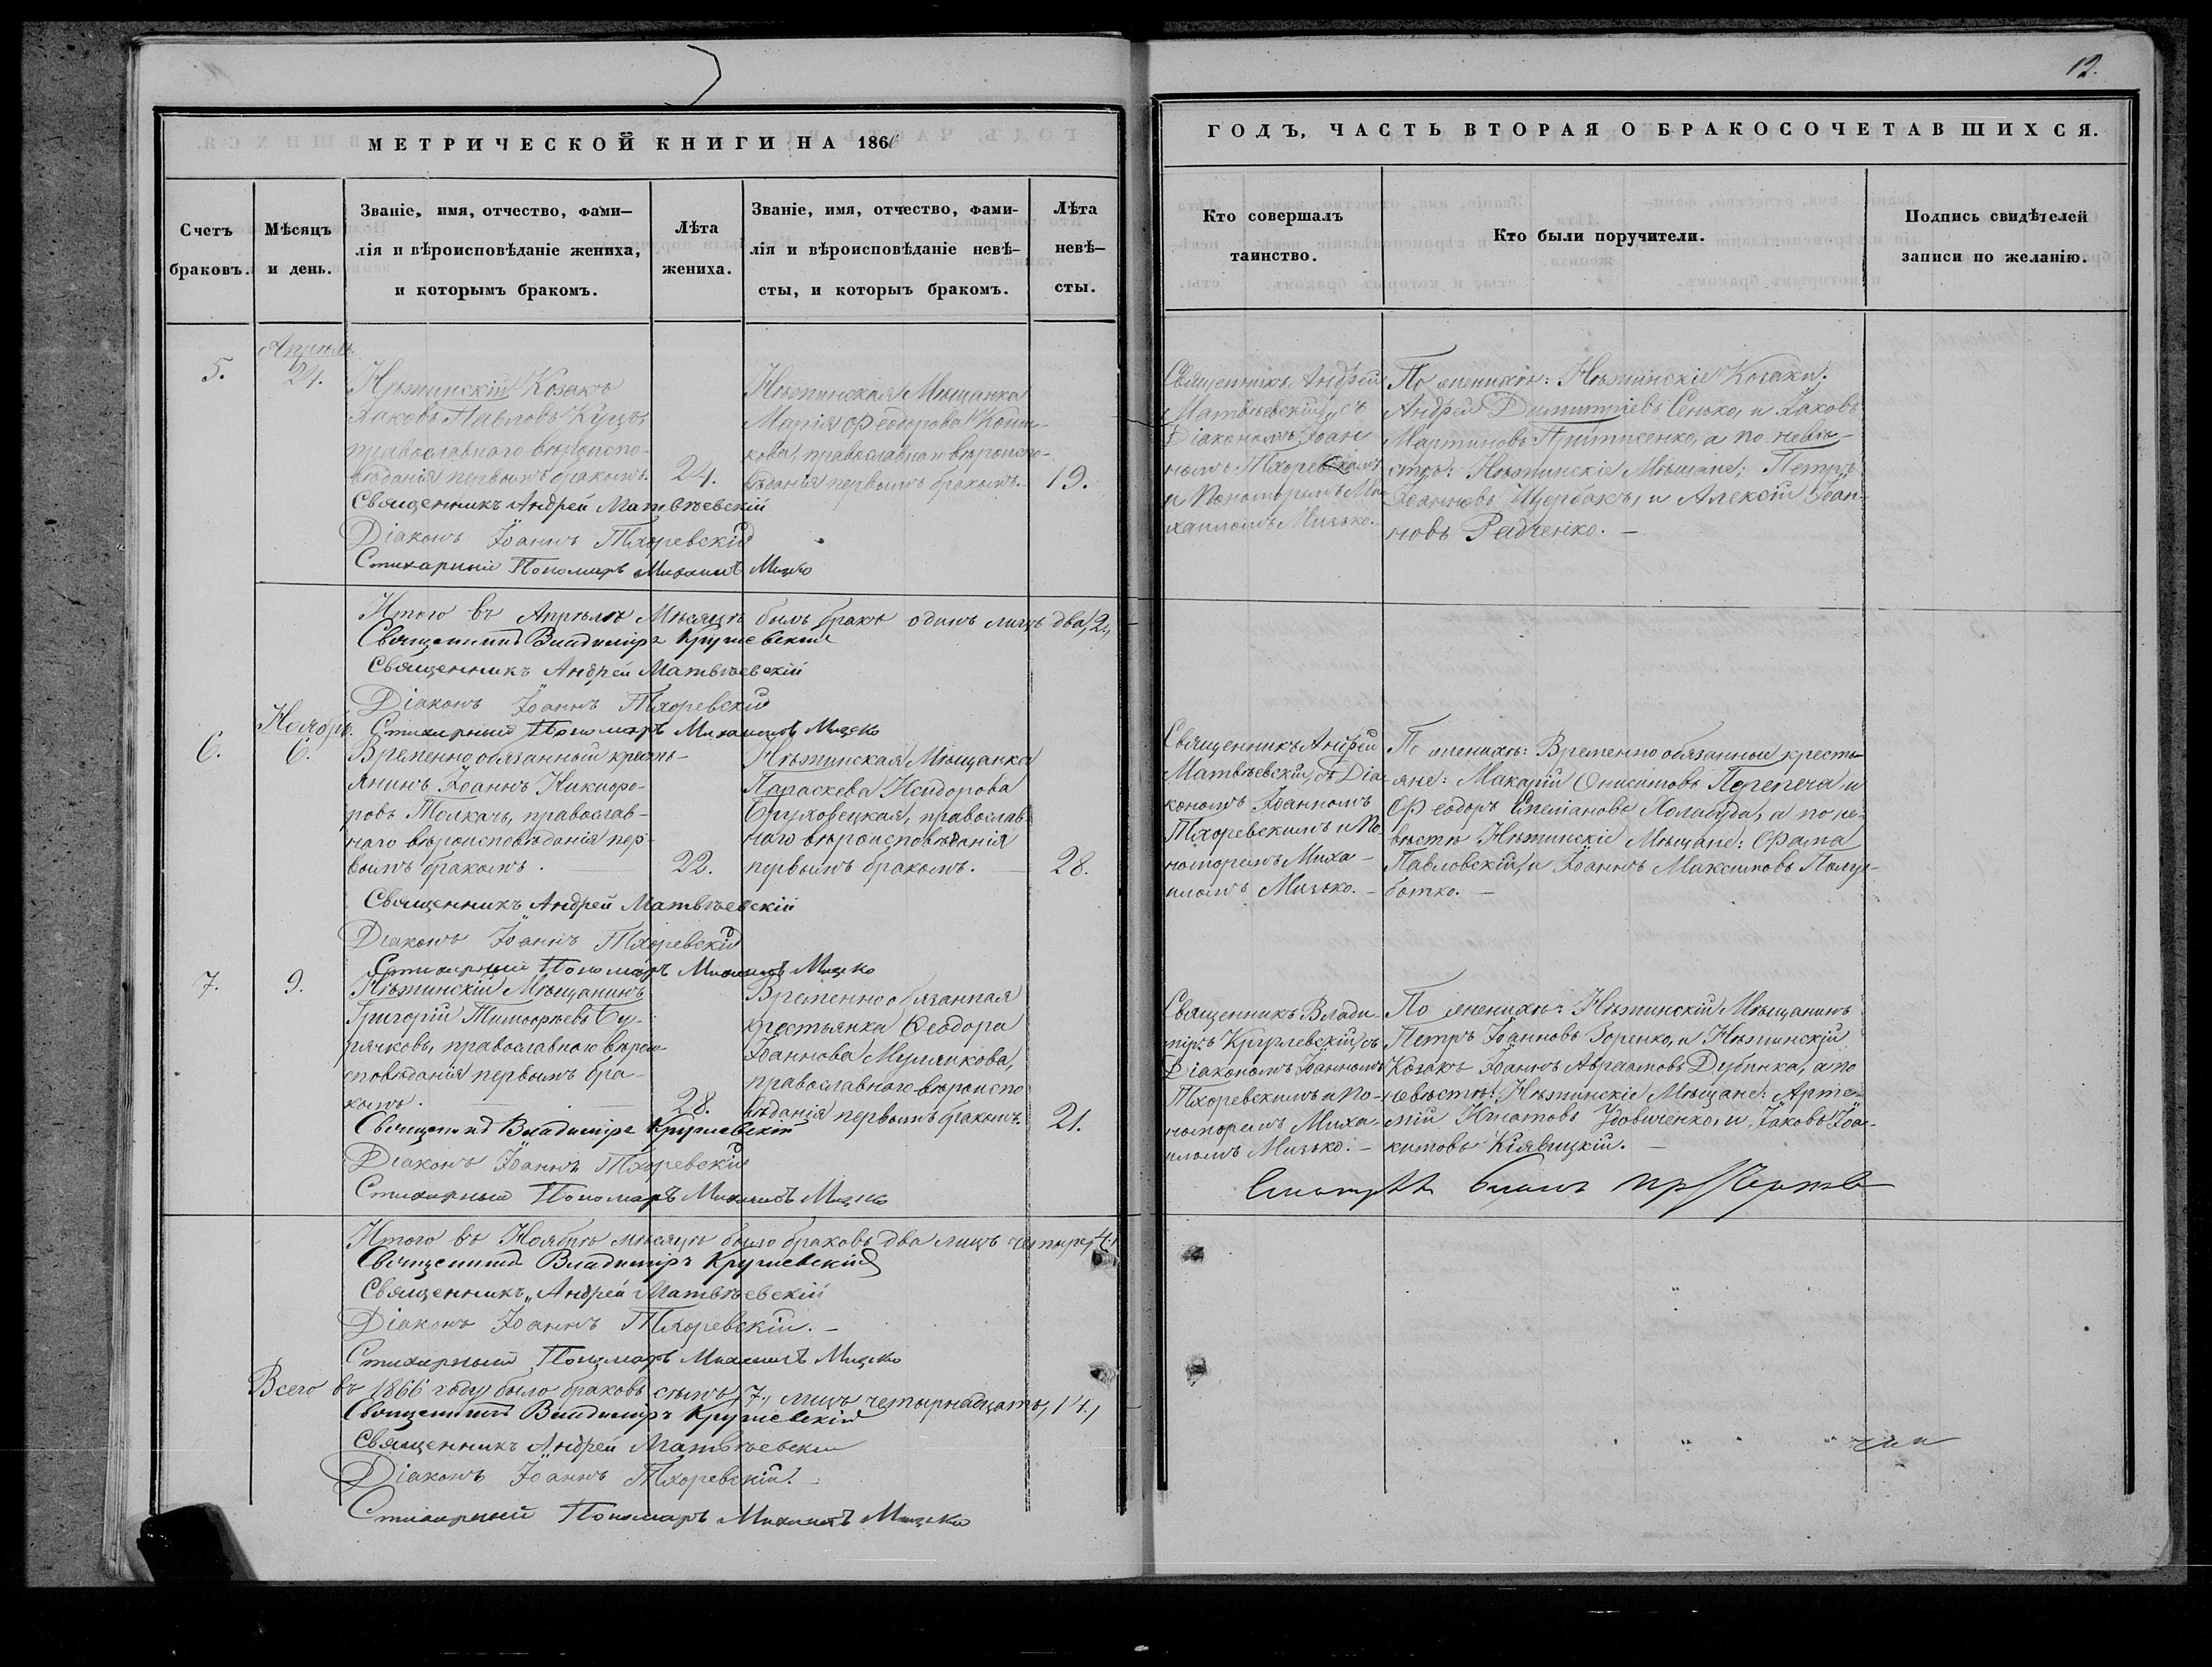 12.
МЕТРИЧЕСКОЙ КНИГИ НА 1866
ГОДЪ, ЧАСТЬ ВТОРАЯ О БРАКОСОЧЕТАВШИХСЯ.
Счетъ
браковъ.
Мѣсяцъ
и день.
Званіе, имя, отчество, фами–
лія и вѣроисповѣданіе жениха,
и которымъ бракомъ.
Лѣта
жениха.
Званіе, имя, отчество, фами-
лія и вѣроисповѣданіе невѣ–
сты, и которыъ бракомъ.
Лѣта
невѣ–
сты.
Кто совершалъ
таинство.
Кто были поручители.
Подпись свидѣтелей
записи по желанію.
5.
Апрѣль
24.
Нѣжинскій Козакъ
Іаковъ Павловъ Куцъ,
православнаго вѣроиспо-
вѣданія первымъ бракомъ.
24.
Нѣжинская Мѣщанка
Марія Феодорова
православнаго вѣроиспо-
вѣданія первымъ бракомъ.
19.
Священникъ Андрей
Матвѣевскій, съ
Діакономъ Іоан
номъ Тхоревскимъ
и Пономаремъ Ми-
хаиломъ Мизько.
По женихѣ: Нѣжинскіе Козаки:
Андрей Димитріевъ Сенько, и Іаковъ
Мартиновъ а по невѣ-
стѣ: Нѣжинскіе Мѣщане: Петръ
Іоанновъ Щербакъ, и Алексій Іоан-
новъ Радченко. –
Священникъ Андрей Матвѣевскій
Діаконъ Іоаннъ Тхоревскій
Стихарный Пономарь Михаилъ Мизко
Итого въ Апрѣлѣ Мѣсяцѣ былъ бракъ одинъ лицъ два, 2,
Священникъ Владиміръ Круглевскій
Священникъ Андрей Матвѣевскій
Діаконъ Іоаннъ Тхоревскій
Стихарный Пономарь Михаилъ Мизко
6.
Ноябрь.
6.
Временнообязанный кресть-
янинъ Іоаннъ Никифо-
ровъ Толкачъ, православ-
наго вѣроисповѣданія пер-
вымъ бракомъ.
22.
Нѣжинская Мѣщанка
Параскева Исидорова
Бруховецкая, православ-
наго вѣроисповѣданія
первымъ бракомъ. –
28.
Священникъ Андрей
Матвѣевскій, съ Діа-
кономъ Іоанномъ
Тхоревскимъ и По-
номаремъ Миха-
иломъ Мизько. –
По женихѣ: Временнообязанные кресть
яне: Макарій Онисимовъ Перепеча и
Феодоръ Стефановъ Холабуда, а по не-
вѣстѣ Нѣжинскіе Мѣщане: Фома
Павловскій, и Іоаннъ Максимовъ Полу-
ботко. –
Священникъ Андрей Матвѣевскій
Діаконъ Іоаннъ Тхоревскій
Стихарный Пономарь Михаилъ Мизко
7.
9.
Нѣжинскій Мѣщанинъ
Григорій Тимофѣевъ Бу-
рячковъ, православнаго вѣрои-
сповѣданія первымъ бра-
комъ.
28.
Временнообязанная
крестьянка Феодора
Іоаннова
православнаго вѣроиспо
вѣданія первымъ бракомъ.
21.
Священникъ Влади-
міръ Круглевскій, съ
Діакономъ Іоанномъ
Тхоревскимъ и По-
номаремъ Миха-
иломъ Мизько. –
По женихѣ: Нѣжинскій Мѣщанинъ
Петръ Іоанновъ Зоренко, и Нѣжинскій
Козакъ Іоаннъ Авраамовъ Дубинка, а по
невѣстѣ: Нѣжинскіе Мѣщане: Арте-
мій Игнатовъ Удовиченко, и Іаковъ Іоа-
кимовъ Кіявицкій. –
Священникъ Владиміръ Круглевскій
Діаконъ Іоаннъ Тхоревскій
Стихарный Пономарь Михаилъ Мизко
Итого въ Ноябрѣ мѣсяцѣ было браковъ два лицъ четыре, 4.
Священникъ Владиміръ Круглевскій
Священникъ Андрей Матвѣевскій
Діаконъ Іоаннъ Тхоревскій. –
Стихарный Пономарь Михаилъ Мизко
Всего въ 1866 году было браковъ семь, 7, лицъ четырнадцать, 14,
Священникъ Владиміръ Круглевскій
Священникъ Андрей Матвѣевскій
Діаконъ Іоаннъ Тхоревскій. –
Стихарный Пономарь Михаилъ Мизко